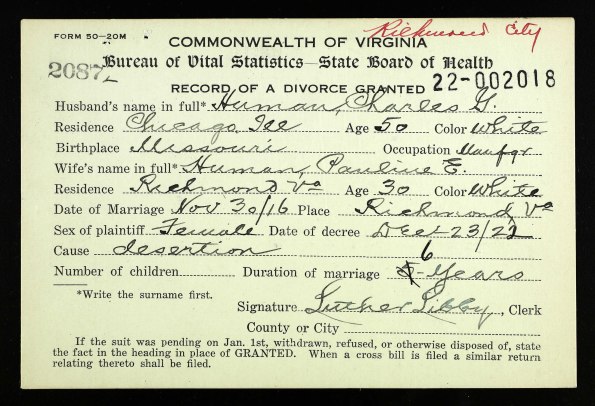 FORM 50-20M
Richmond City
COMMONWEALTH OF VIRGINIA
Bureau of Vital Statistics—State Board of Health
2087
RECORD OF A DIVORCE GRANTED
22-002018
Husband's name in full* Human, Charles G.
Residence Chicago, Ill Age 50 Color White
Birthplace Missouri Occupation Manfgr
Wife's name in full* Human, Pauline E.
Residence Richmond Va Age 30 Color White
Date of Marriage Nov 30/16 Place Richmond, Va
Sex of plaintiff Female Date of decree Dec 23/22
Cause desertion
Number of children Duration of marriage 6 Years
*Write the surname first.
Signature Luther Libby, Clerk
County or City
If the suit was pending on Jan. 1st, withdrawn, refused, or otherwise disposed of, state
the fact in the heading in place of GRANTED. When a cross bill is filed a similar return
relating thereto shall be filed.